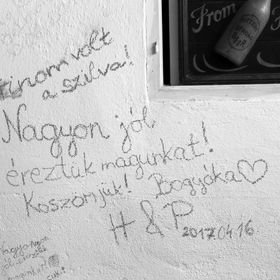 From
Finom volt
a szilva!
Nagyon jól
éreztük magunkat!
Köszönjük! Bogyóka♡
H & P 2017.04.16.